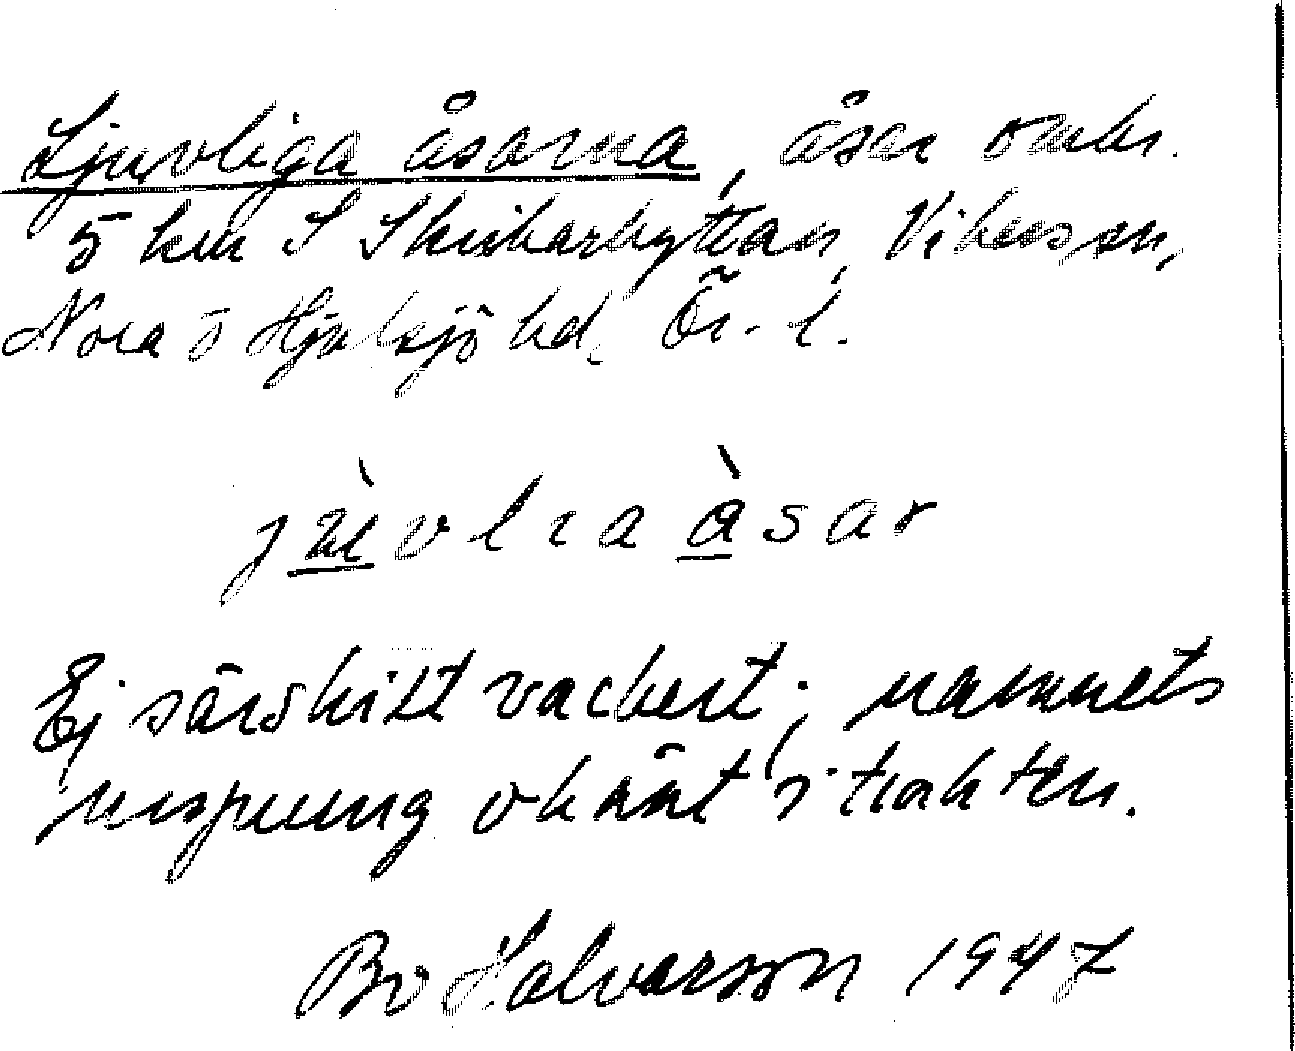 Ljuvliga åsarna, åsar omkr.
5 km S Skrikarhyttan, Vikers sn,
Nora o Hjulsjö hd, Ör. l.
jù̱vlia à̱sar
Ej särskilt vackert; namnets
ursprung okänt i trakten.
Bo Halvarson 1947